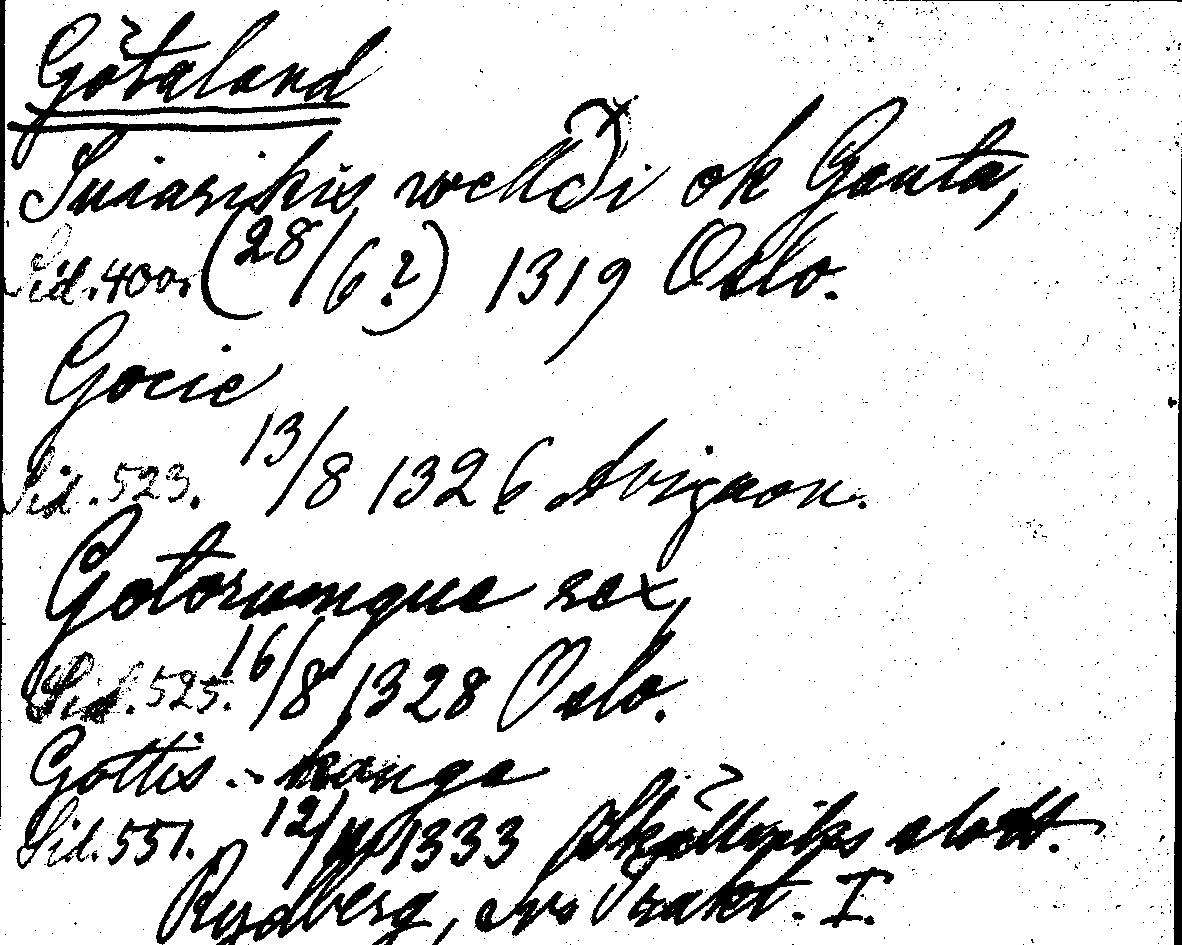 Götaland
Suiarikis welldi ok Gauta,
Sid. 400. (28/6?) 1319 Oslo.
Gocie
Sid. 523. 13/8 1326 Avignon.
Gotorumque rex,
Sid. 525. 16/8 1328 Oslo.
Gottis - konga
Sid. 551. 12/ 1333 Skällviks slott.
Rydberg, Sv. Trakt. I.